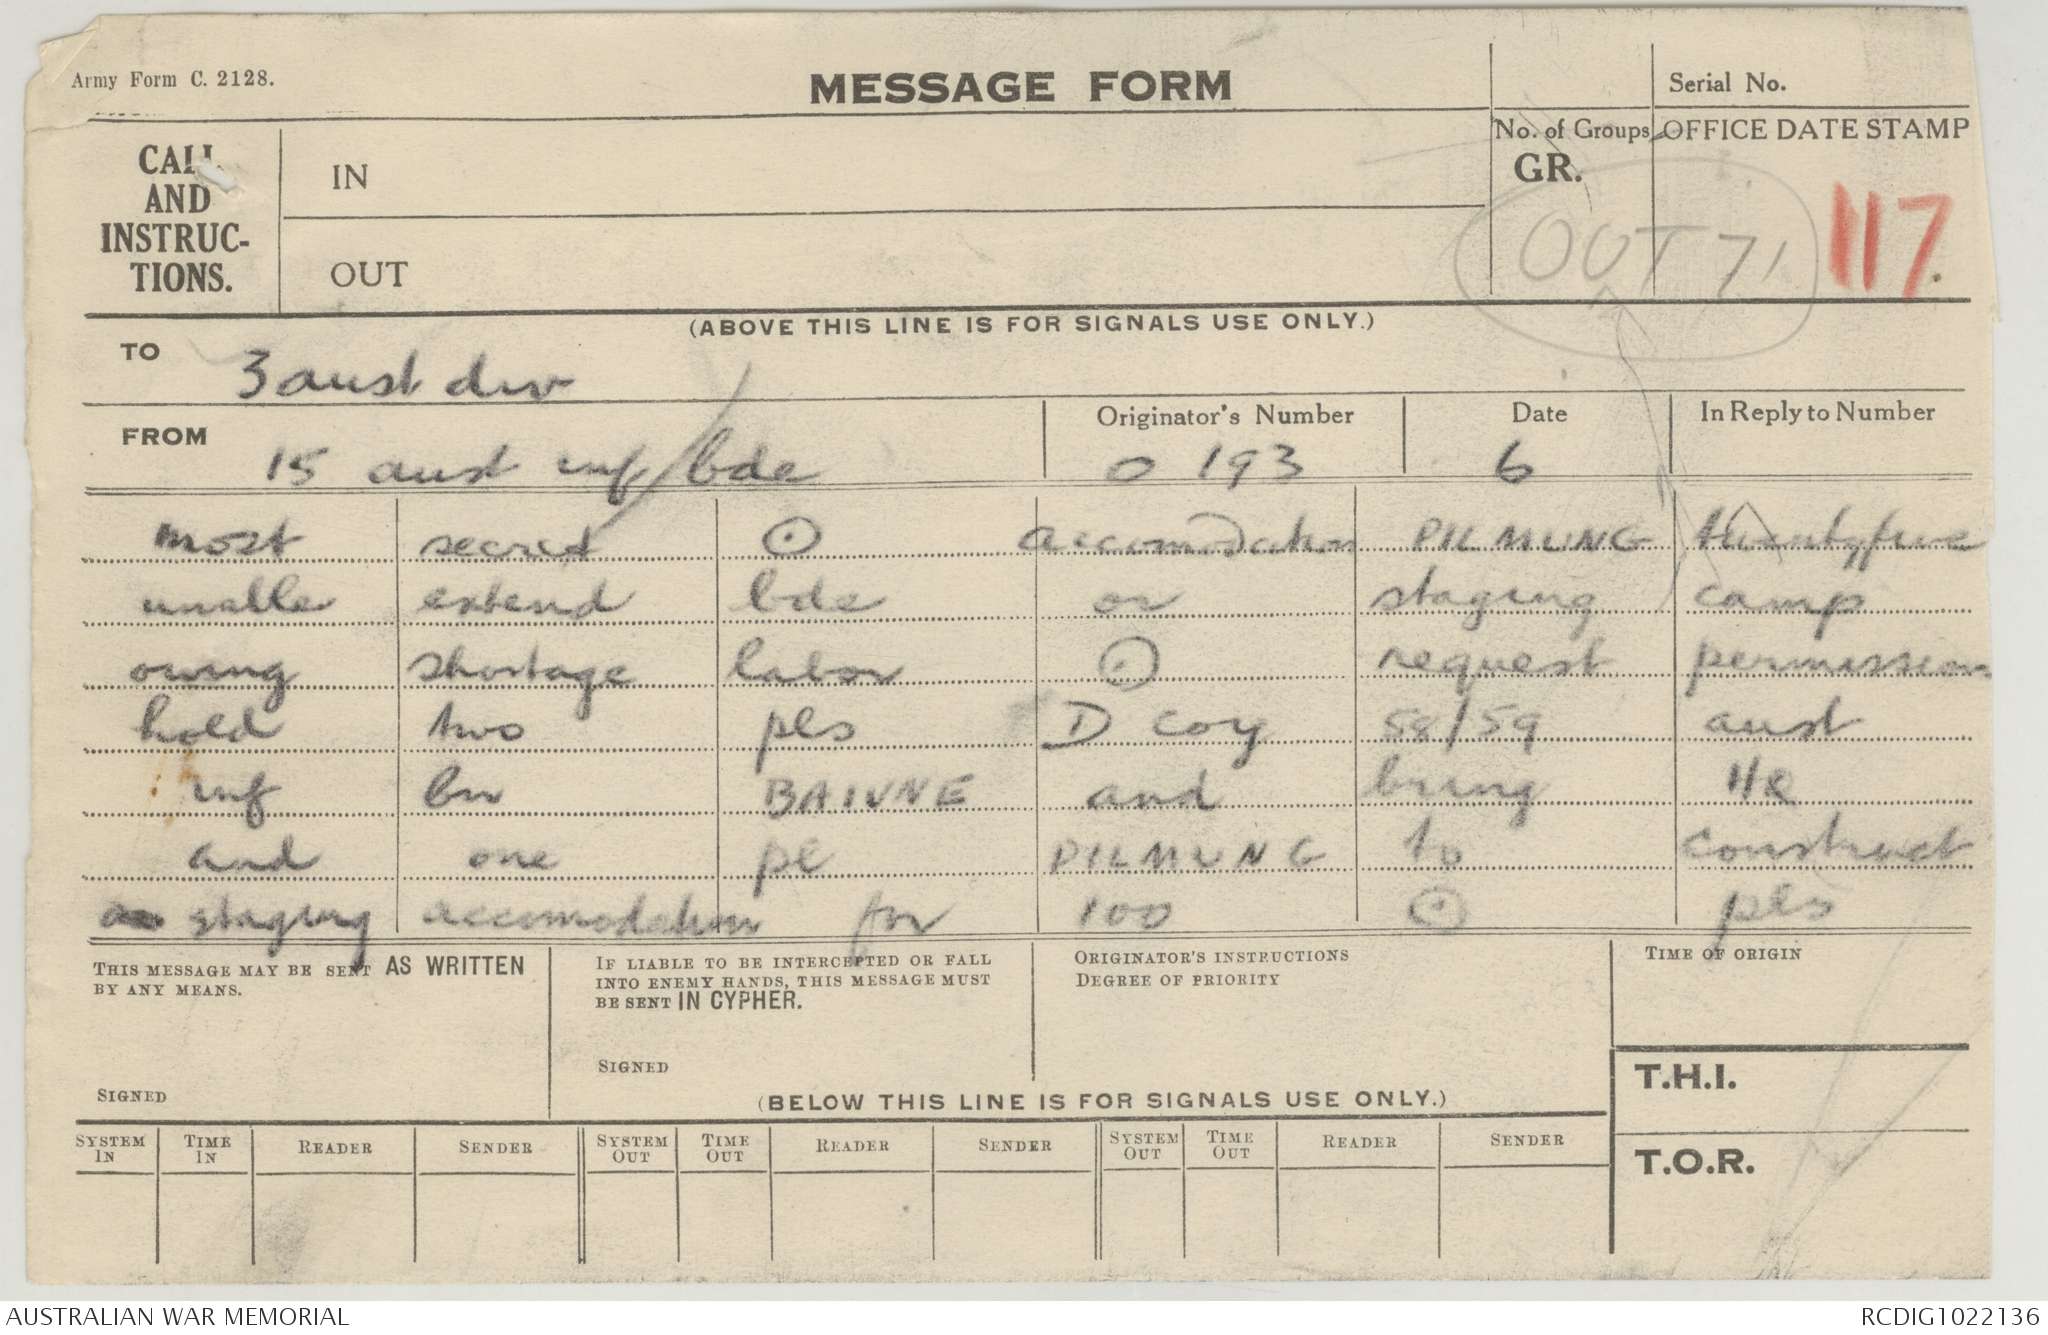 Army Form C. 2128.
MESSAGE FORM
Serial No.
CALL AND INSTRUC-TIONS.
IN
OUT
No. of Groups
GR.
OFFICE DATE STAMP
OUT 71
117
(ABOVE THIS LINE IS FOR SIGNALS USE ONLY.)
TO
3 aust div
FROM
15 aust inf bde
Originator's Number
O 193
Date
6
In Reply to Number
most secret ⊙ accomodation PILMUNG twentyfive
unable extend bde or staging camp
owing shortage labor ⊙ request permission
hold two pls D coy 58/59 aust
inf bn BAIUNE and bring HQ
and one pl PILMUNG to construct
staging accomodation for 100 ⊙ pls
THIS MESSAGE MAY BE SENT AS WRITTEN
BY ANY MEANS.
SIGNED
IF LIABLE TO BE INTERCEPTED OR FALL
INTO ENEMY HANDS, THIS MESSAGE MUST
BE SENT IN CYPHER.
SIGNED
ORIGINATOR'S INSTRUCTIONS
DEGREE OF PRIORITY
TIME OF ORIGIN
T.H.I.
T.O.R.
(BELOW THIS LINE IS FOR SIGNALS USE ONLY.)
SYSTEM IN TIME IN READER SENDER SYSTEM OUT TIME OUT READER SENDER SYSTEM OUT TIME OUT READER SENDER
AUSTRALIAN WAR MEMORIAL
RCDIG1022136